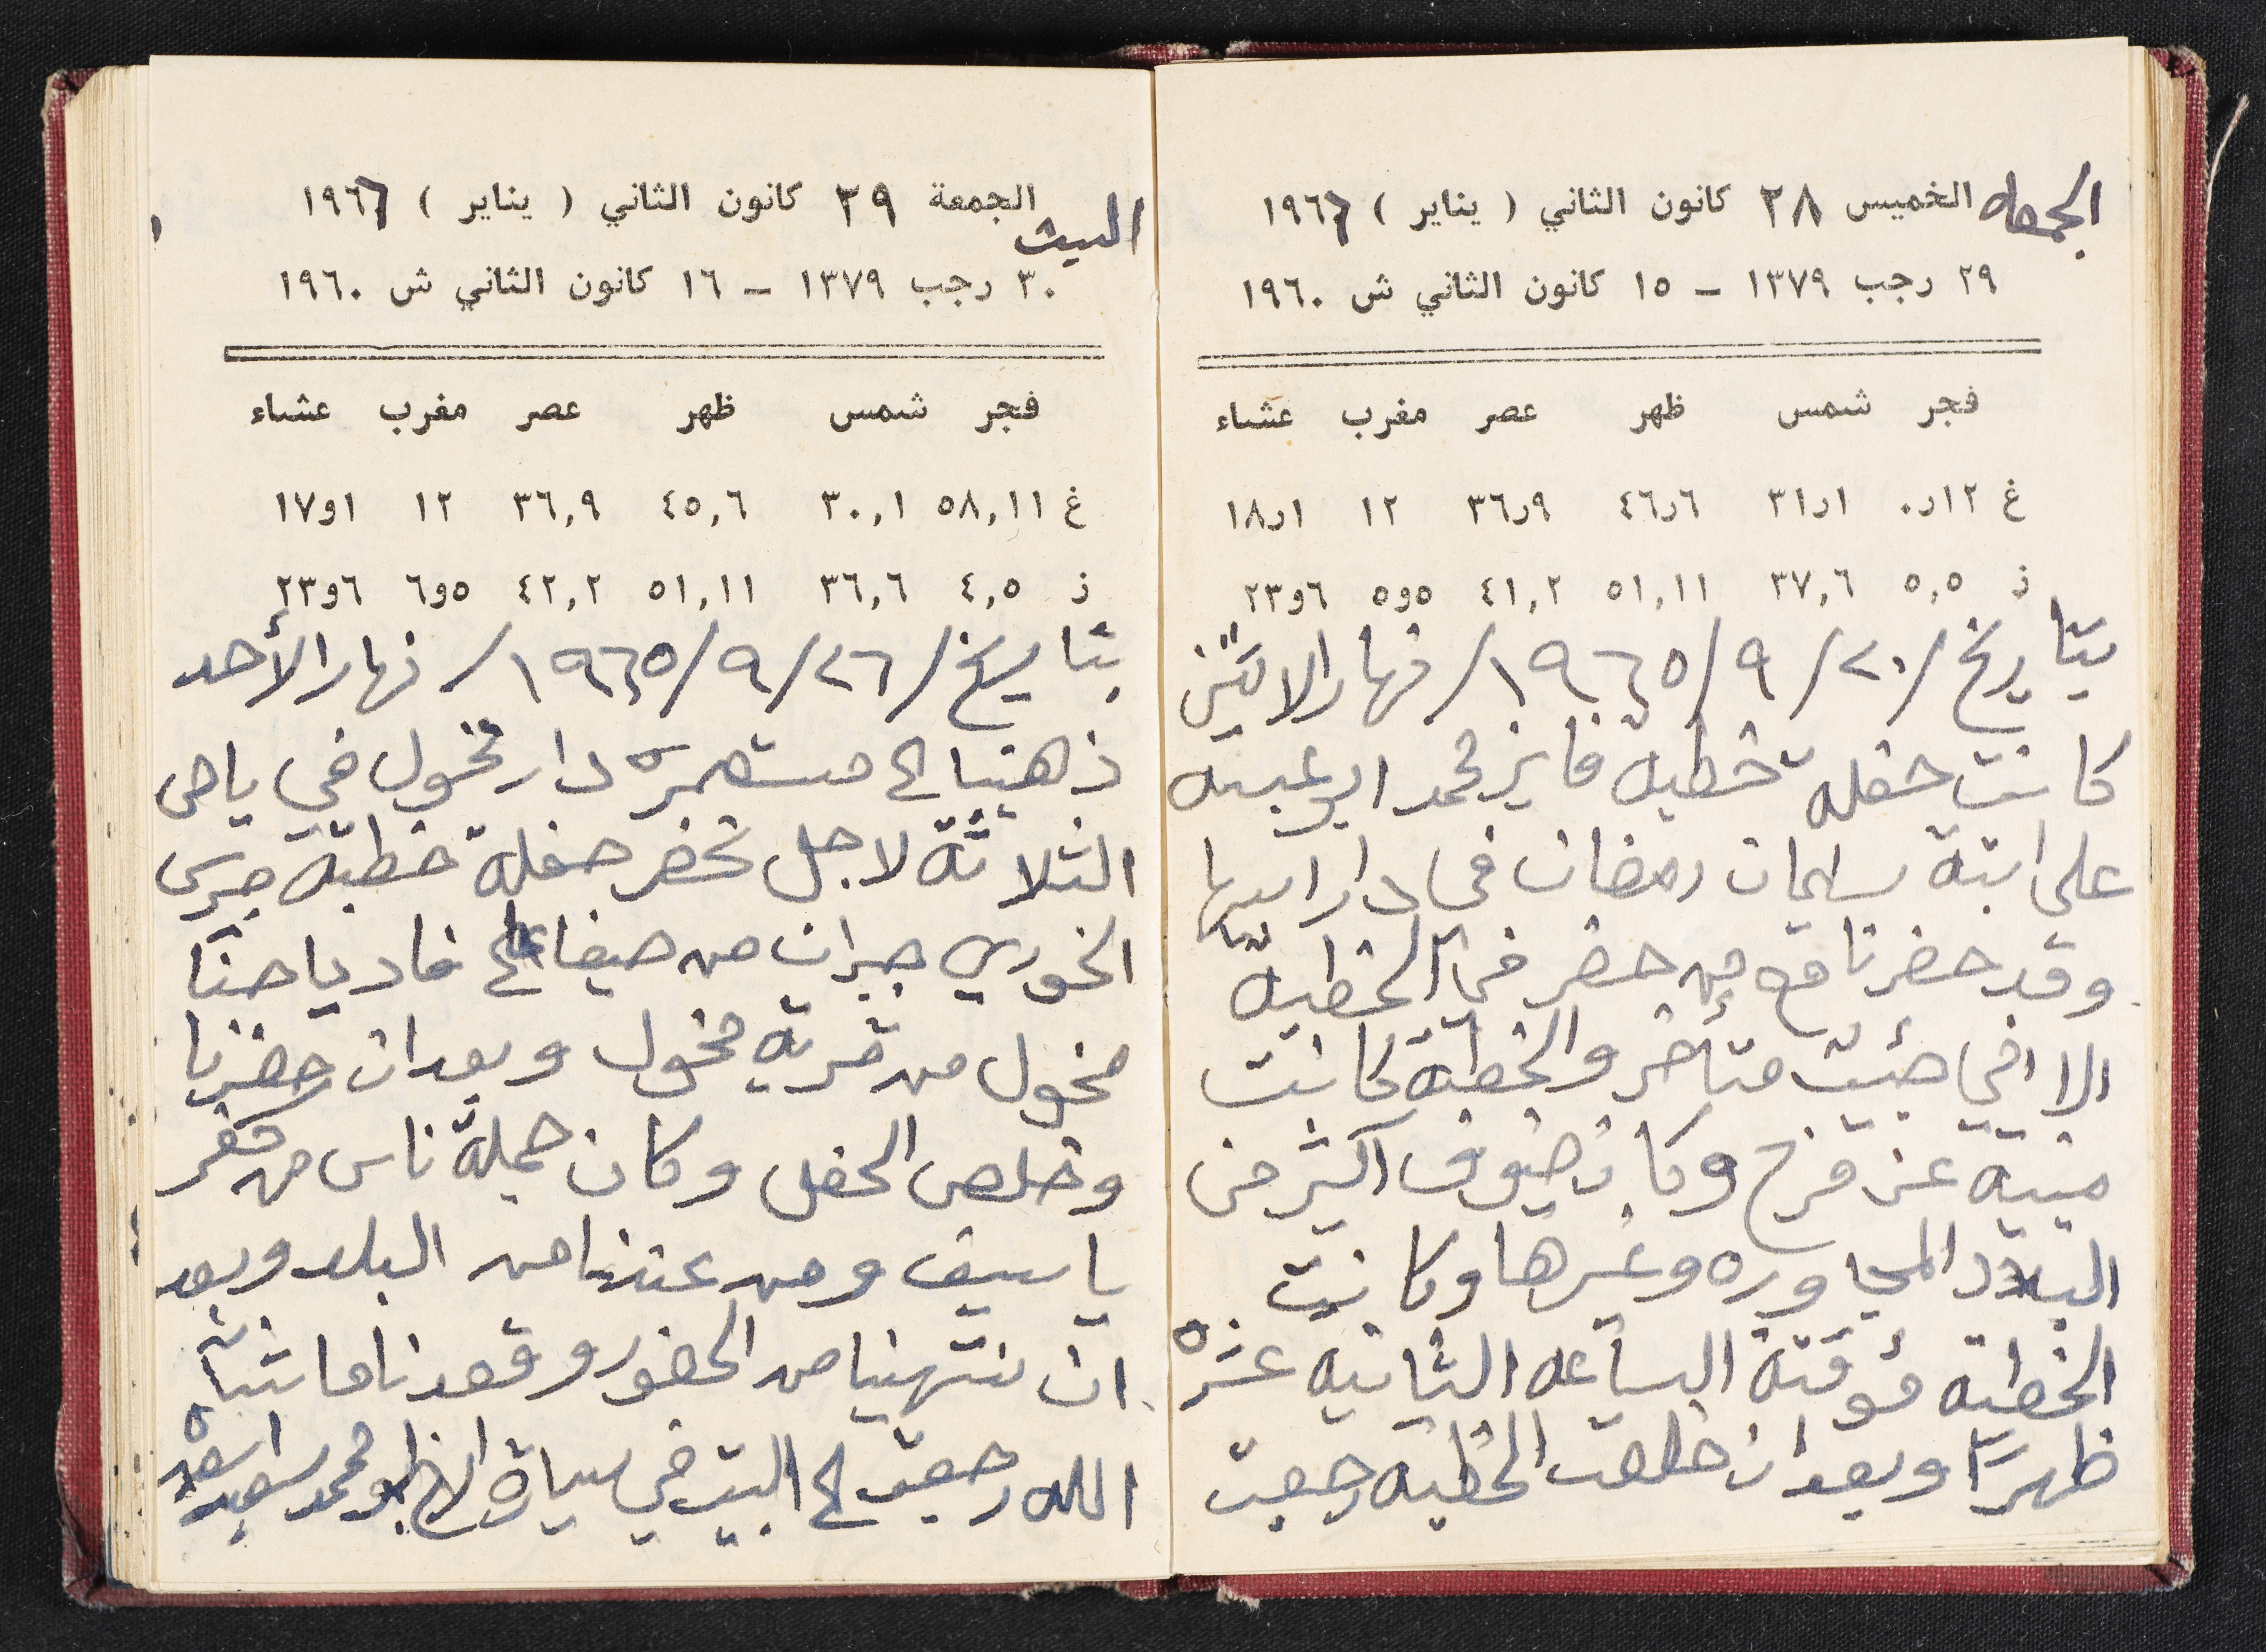 الجمعه الخميس ٢٨ كانون الثاني ( يناير ) ١٩٦٦
٢٩ رجب ١٣٧٩ – ١٥ كانون الثاني ش ١٩٦٠
فجر شمس ظهر عصر مغرب عشاء
غ ١٢ر٠ ١ر٣١ ٦ر٤٦ ٩ر٣٦ ١٢ ١ر١٨
ذ ٥,٥ ٣٧,٦ ٥١,١١ ٤١,٢ ٥و٥ ٦و٢٣
بتاريخ /٢٠/٩/١٩٦٥/ نهار الاثنين
كانت حفلة خطبة فايز محمد ابو عبيد
على ابنة سليمان رمضان في دار ابيها
وقد حضرنا مع من حضر في الخطبة
الا افي جئت متأخر والخطبة كانت
مبنية عن فرح وكان ضيوف اكثر من
البلاد المجاوره وغيرها وكانت
الخطبه مؤقتة الساعه الثانيه عشره
ظهرًا وبعد ان خلصت الخطبه رجعت
الجمعة ٢٩ كانون الثاني ( يناير ) ١٩٦٦
السبت
٣٠ رجب ١٣٧٩ – ١٦ كانون الثاني ش ١٩٦٠
فجر شمس ظهر عصر مغرب عشاء
غ ٥٨,١١ ٣٠,١ ٤٥,٦ ٣٦,٩ ١٢ ١و١٧
ذ ٤,٥ ٣٦,٦ ٥١,١١ ٤٢,٢ ٥و٦ ٦و٢٣
بتاريخ /٢٦/٩/١٩٦٥/ نهار الأحد
ذهبنا الى مستعمرة دار مخول في باص
الثلاثة لاجل نحضر حفلة خطبة جريس
الخوري جبران من حيفا على ناديا حنا
مخول من قرية مخول وبعد ان حضرنا
وخلص الحفل وكان جملة ناس من كفر
ياسيف ومن عندنا من البلد وبعد
ان نتهينا من الحضور وقعدنا ماشاء
الله رجعت الى البيت في سيارة الاخ ابو محمد سعيد اسعد